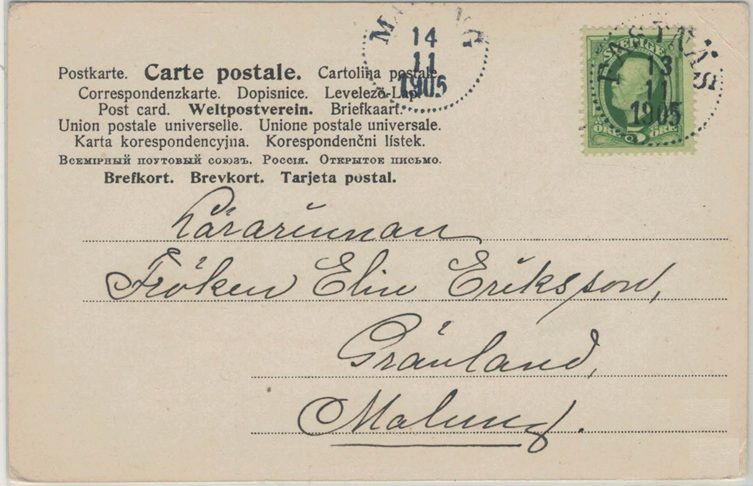 MALUNG
14
11
1905
SVERIGE
FASTNÄS
13
11
1905
5
ÖRE ÖRE
Postkarte. Carte postale. Cartolina postale.
Correspondenzkarte. Dopisnice. Levelező-Lap.
Post card. Weltpostverein. Briefkaart.
Union postale universelle. Unione postale universale.
Karta korespondencyjna. Korespondenční lístek.
Всемірный почтовый союзъ. Россія. Открытое письмо.
Brefkort. Brevkort. Tarjeta postal.
Lärarinnan
Fröken Elin Eriksson,
Gränland,
Malung.